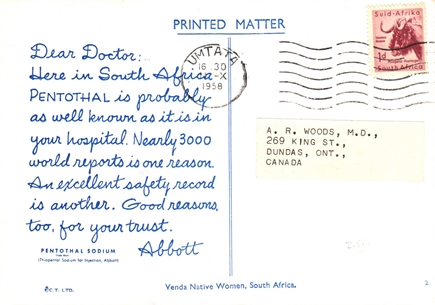 PRINTED MATTER
Dear Doctor:
Here in South Africa
PENTOTHAL is probably
as well known as it is in
your hospital. Nearly 3000
world reports is one reason.
An excellent safety record
is another. Good reasons,
too, for your trust.
Abbott
PENTOTHAL SODIUM
(Thiopental Sodium for Injection, Abbott)
C.T. LTD.
UMTATA
16.30
-X
1958
Suid-Afrika
1d
South Africa
A. R. WOODS, M.D.,
269 KING ST.,
DUNDAS, ONT.,
CANADA
Venda Native Women, South Africa.
2